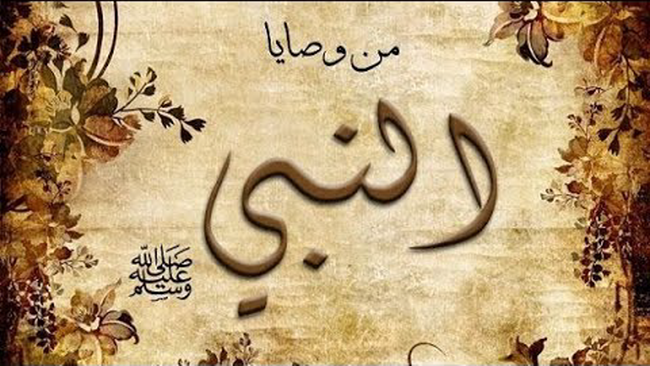 من وصايا
النبي
صلى الله
عليه
وسلم